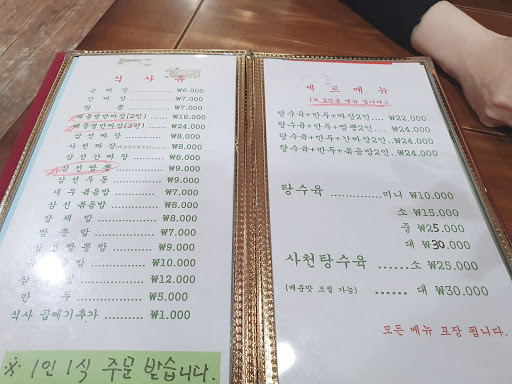 식 사 류
손 짜 장 ........... ₩6.000
간 짜 장 ........... ₩7.000
짬 뽕 ........... ₩7.000
쟁반짜장(2인) ........ ₩16.000
쟁반짜장(3인) ........ ₩24.000
삼 선 짜 장 ........... ₩8.000
사 천 짜 장 ........... ₩8.000
삼 선 간 짜 장 ........... ₩8.000
삼 선 짬 뽕 ........... ₩9.000
삼 선 우 동 ........... ₩9.000
새 우 볶 음 밥 ........... ₩7.000
삼 선 볶 음 밥 ........... ₩8.000
잡 채 밥 ........... ₩8.000
짬 뽕 밥 ........... ₩7.000
삼 선 짬 뽕 밥 ........... ₩9.000
밥 ........... ₩10.000
₩12.000
만 두 ........... ₩5.000
식사 곱빼기추가 ........... ₩1.000
※ 1인 1식 주문 받습니다.
세 트 메 뉴
탕수육+만두+짜장2인 ... ₩22.000
탕수육+만두+짬뽕2인 ... ₩24.000
탕수육+만두+간짜장2인 .. ₩24.000
탕수육+만두+볶음밥2인 .. ₩24.000
탕수육 ........... 미니 ₩10.000
소 ₩15.000
중 ₩25.000
대 ₩30.000
사천탕수육 ....... 소 ₩25.000
(매운맛 조절 가능) ....... 대 ₩30.000
모든 메뉴 포장 됩니다.